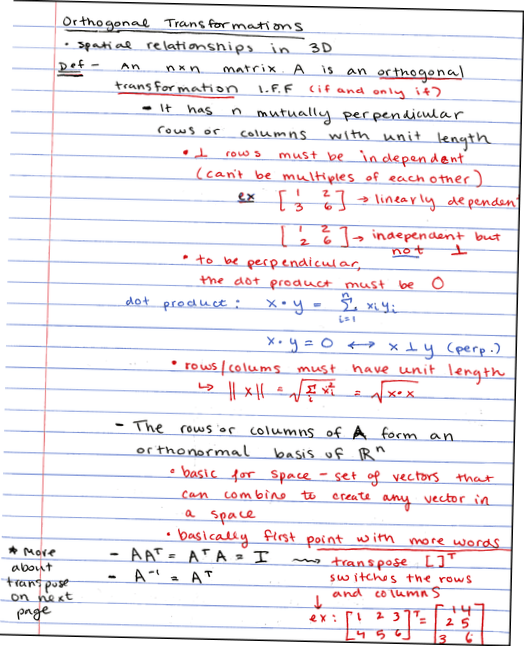 Orthogonal Transformations
• spatial relationships in 3D
Def - An n×n matrix A is an orthogonal
transformation I.F.F (if and only if)
- It has n mutually perpendicular
rows or columns with unit length
• ⊥ rows must be independent
(can't be multiples of each other)
ex [1 2
3 6] → linearly dependent
[1 2
2 6] → independent but
not ⊥
• to be perpendicular,
the dot product must be 0
dot product: x • y = Σⁿᵢ₌₁ xᵢyᵢ
x • y = 0 ↔ x ⊥ y (perp.)
• rows/colums must have unit length
↳ ||x|| = √(Σᵢ xᵢ²) = √(x•x)
- The rows or columns of A form an
orthonormal basis of ℝⁿ
• basic for space - set of vectors that
can combine to create any vector in
a space
• basically first point with more words
* More
about
transpose
on next
page
- AAᵀ = AᵀA = I ⟿ transpose [ ]ᵀ
- A⁻¹ = Aᵀ
switches the rows
and columns
↓
ex: [1 2 3
4 5 6]ᵀ = [1 4
2 5
3 6]